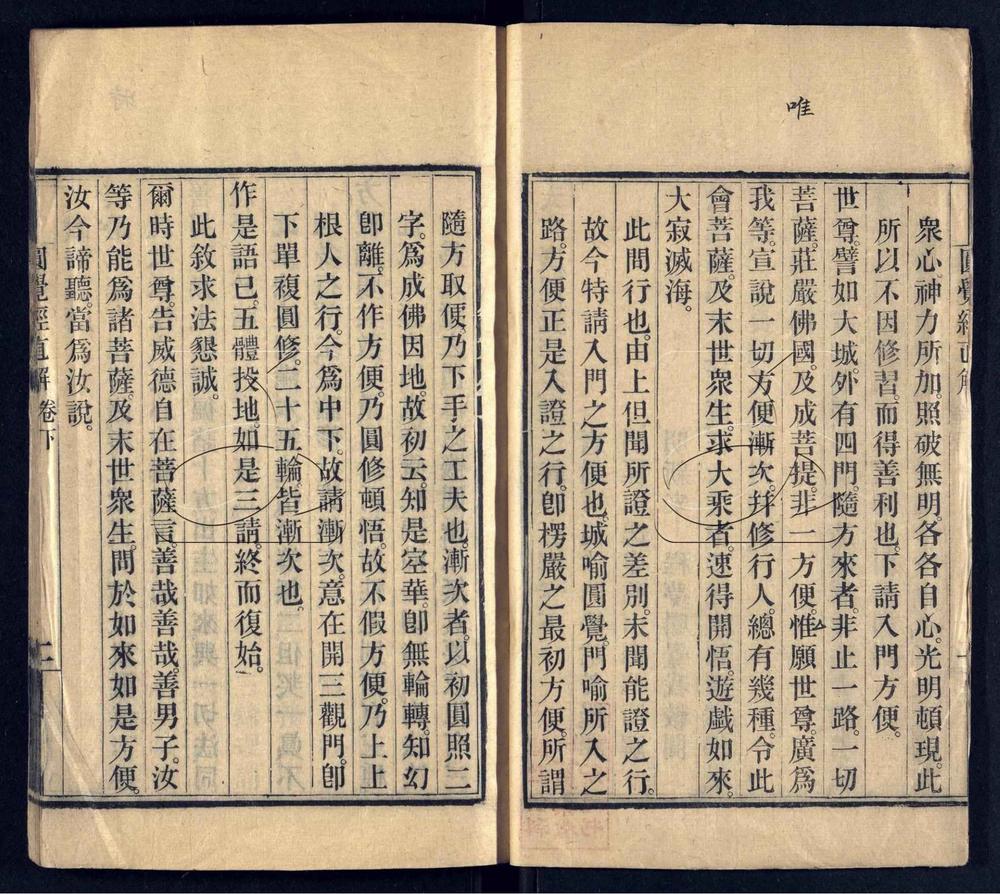 唯
圓覺經直解
衆心。神力所加。照破無明。各各自心。光明頓現。此
所以不因修習。而得善利也。下請入門方便。
世尊。譬如大城。外有四門。隨方來者。非止一路。一切
菩薩。莊嚴佛國。及成菩提。非一方便。惟願世尊。廣爲
我等。宣說一切方便漸次。并修行人。總有幾種。令此
會菩薩。及末世衆生。求大乘者。速得開悟。遊戲如來。
大寂滅海。
此問行也。由上但聞所證之差別。未聞能證之行。
故今特請入門之方便也。城喻圓覺。門喻所入之
路。方便正是入證之行。卽楞嚴之最初方便。所謂
隨方取便。乃下手之工夫也。漸次者。以初圓照三
字。爲成佛因地。故初云。知是空華。卽無輪轉。知幻
卽離。不作方便。乃圓修頓悟。故不假方便。乃上上
根人之行。今爲中下。故請漸次。意在開三觀門。卽
下單複圓修。二十五輪。皆漸次也。
作是語已。五體投地。如是三請。終而復始。
此敘求法懇誠。
爾時世尊。告威德自在菩薩言。善哉善哉。善男子。汝
等乃能爲諸菩薩。及末世衆生。問於如來如是方便。
汝今諦聽。當爲汝說。
圓覺經直解 卷下